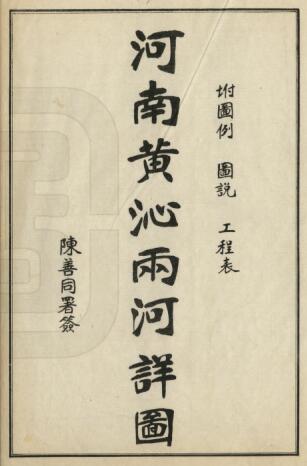 坿圖例 圖説 工程表
河南黃沁兩河詳圖
陳善同署簽